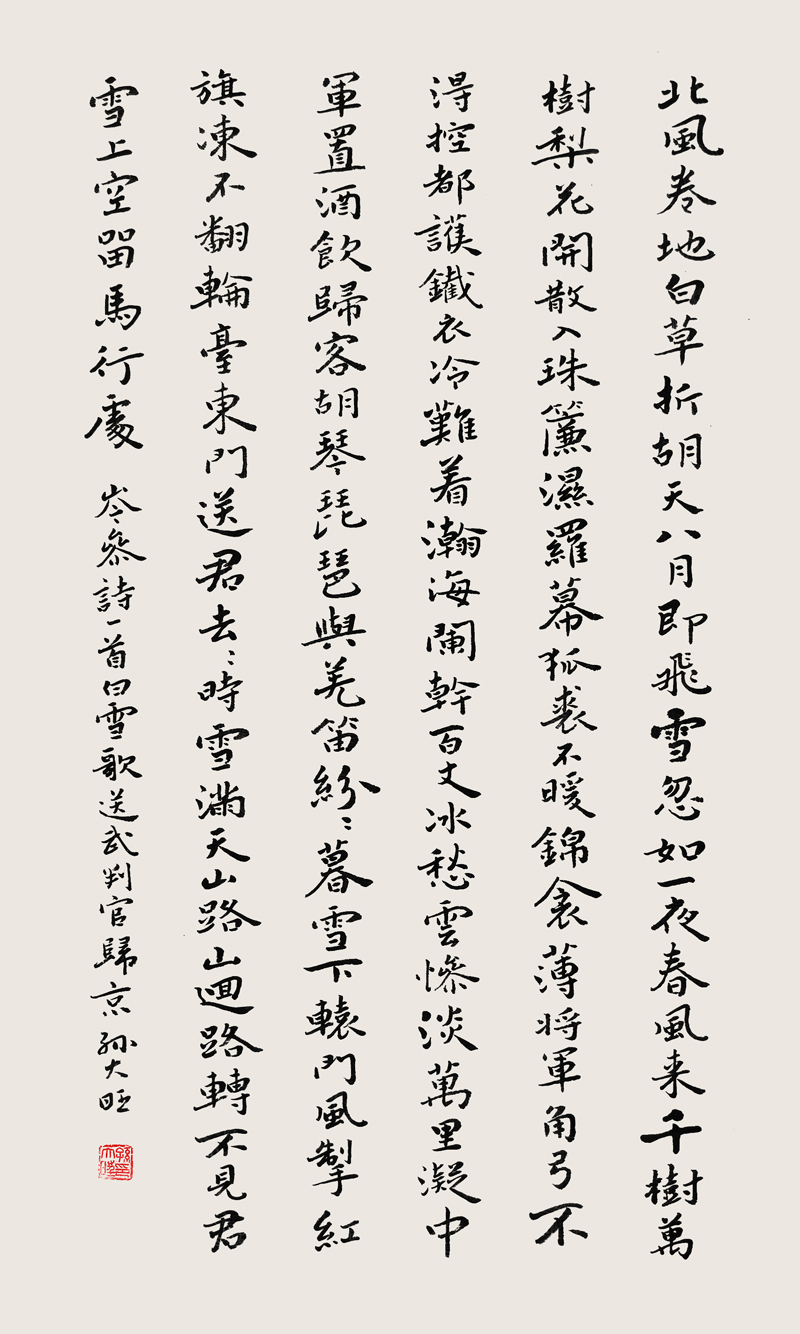 北風卷地白草折胡天八月即飛雪忽如一夜春風来千樹萬
樹梨花開散入珠簾濕羅幕狐裘不暖錦衾薄将軍角弓不
得控都護鐵衣冷難着瀚海闌幹百丈冰愁雲慘淡萬里凝中
軍置酒飲歸客胡琴琵琶與羌笛紛〻暮雪下轅門風掣紅
旗凍不翻輪臺東門送君去〻時雪滿天山路山迴路轉不見君
雪上空留馬行處 岑參詩一首白雪歌送武判官歸京 孫大旺